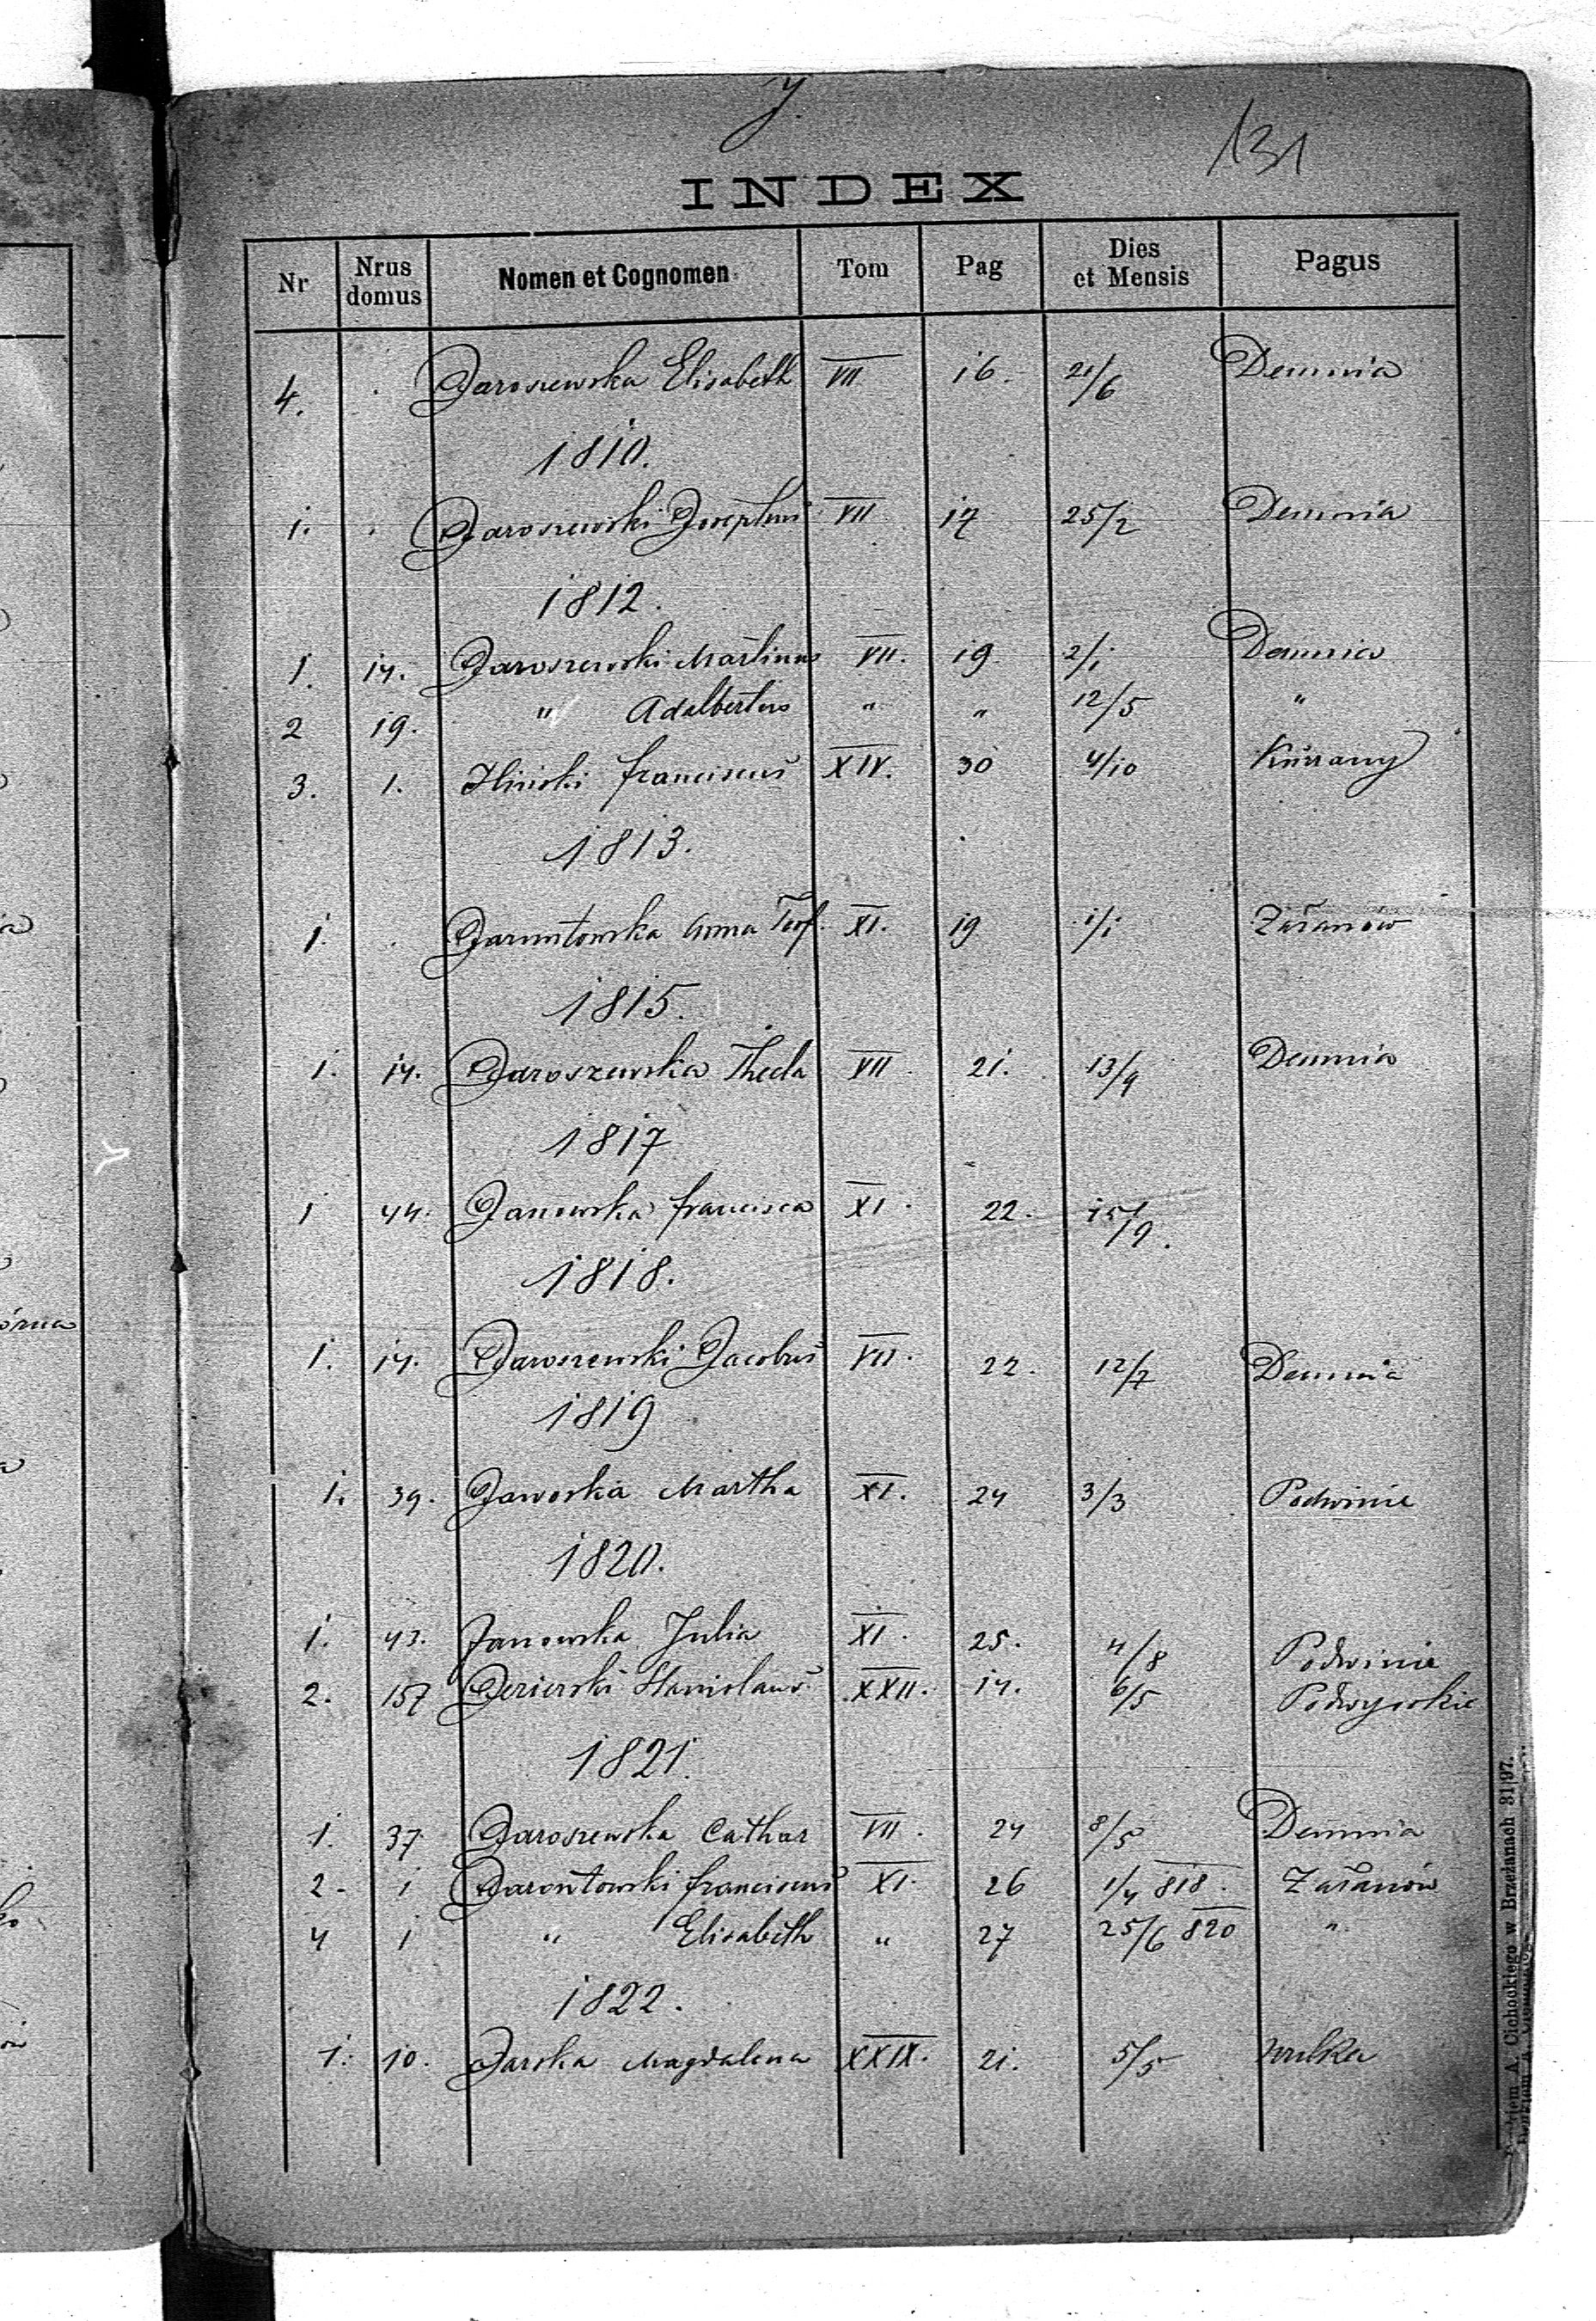 J.
131
INDEX
Nr | Nrus domus | Nomen et Cognomen | Tom | Pag | Dies et Mensis | Pagus
4. | . | Jaroszewska Elisabeth | VII | 16. | 21/6 | Demnia
1810.
1. | . | Jaroszewski Josephus | VII | 17 | 25/2 | Demnia
1812.
1. | 14. | Jaroszewski Martinus | VII. | 19 | 2/1 | Demnia
2 | 19. | " Adalbertus | " | " | 12/5 | "
3. | 1. | franciscus | XIV. | 30 | 4/10
1813.
1. | . | Jarontowska Anna Teof. | XI. | 19 | 1/1 | Załanów
1815.
1. | 14. | Jaroszewska Thecla | VII | 21. | 13/9 | Demnia
1817
1 | 44. | Janowska francisca | XI. | 22. | 15/9.
1818.
1. | 14. | Jaroszewski Jacobus | VII. | 22. | 12/7 | Demnia
1819
1. | 39. | Jaworska Martha | XI. | 24 | 3/3 | Podwinie
1820.
1. | 43. | Janowska Julia | XI. | 25. | 4/8 | Podwinie
2. | 157 | Jezierski Stanislaus | XXII. | 14. | 6/5 | Podwysokie
1821.
1. | 37 | Jaroszewska Cathar | VII. | 24 | 8/5 | Demnia
2. | 1 | Jarontowski franciscus | XI. | 26 | 1/4 818. | Załanów
4 | 1 | " Elisabeth | " | 27 | 25/6 820 | "
1822.
1. | 10. | Jarska Magdalena | XXIX. | 21. | 5/5 | Wulka
A. Cichockiego w Brzeżanach 31|97.